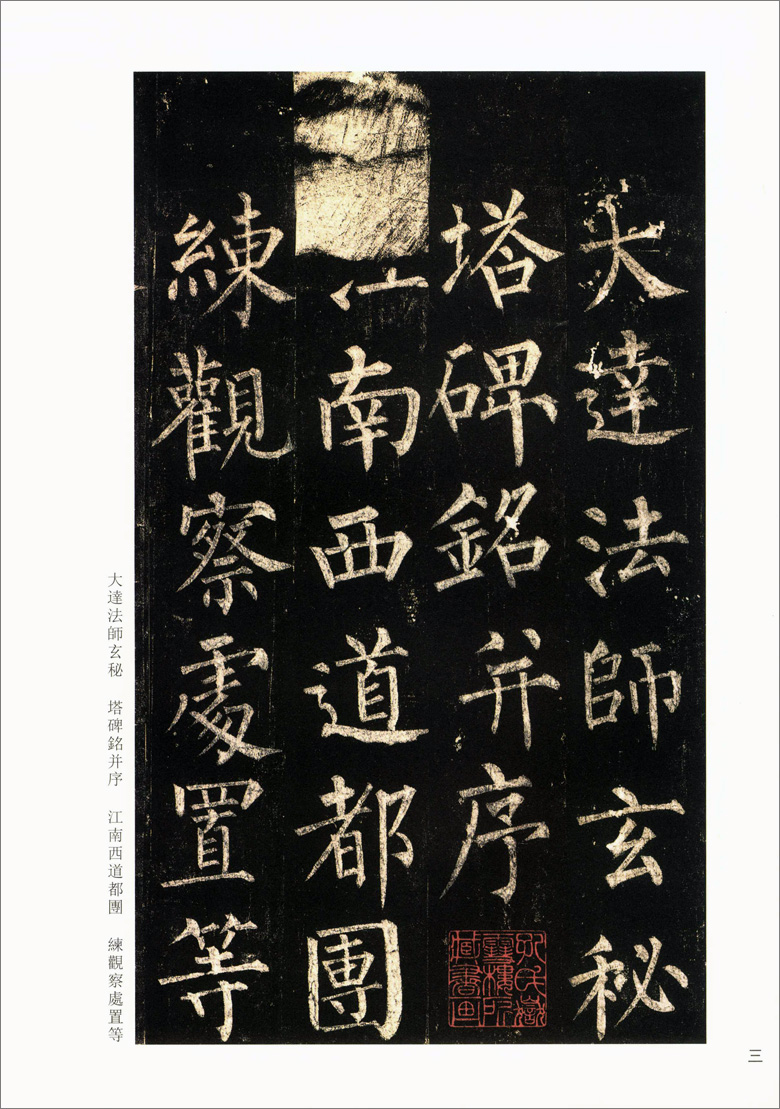 大達法師玄秘
塔碑銘并序
孔氏嶽
雪樓所
藏書畫
江南西道都團
練觀察處置等
大達法師玄秘 塔碑銘并序 江南西道都團 練觀察處置等
三